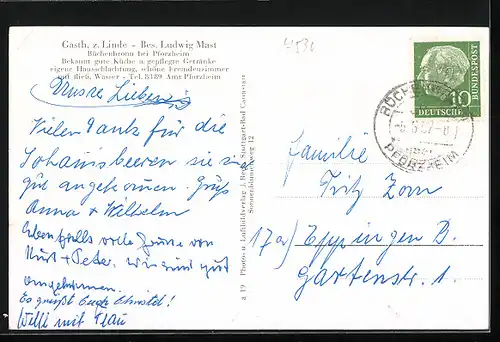 Gasth. z. Linde - Bes. Ludwig Mast
Büchenbronn bei Pforzheim
Bekannt gute Küche u. gepflegte Getränke
eigene Hausschlachtung, schöne Fremdenzimmer
mit fließ. Wasser - Tel. 8189 Amt Pforzheim
Unsere Lieben
Vielen Dank für die
Johannisbeeren sie sind
gut angekommen. Gruß
Anna + Wilhelm
Ebenfalls von
Kurt + Peter, wir sind gut
angekommen.
Es grüßt Euch Christel!
Willi mit Frau
a 19 Photo- u. Luftbildverlag
Stuttgart-Bad Cannstatt
12
DEUTSCHE BUNDESPOST
10
PFORZHEIM
Familie
Fritz Zorn
17a) Eppingen B.
Gartenstr. 1